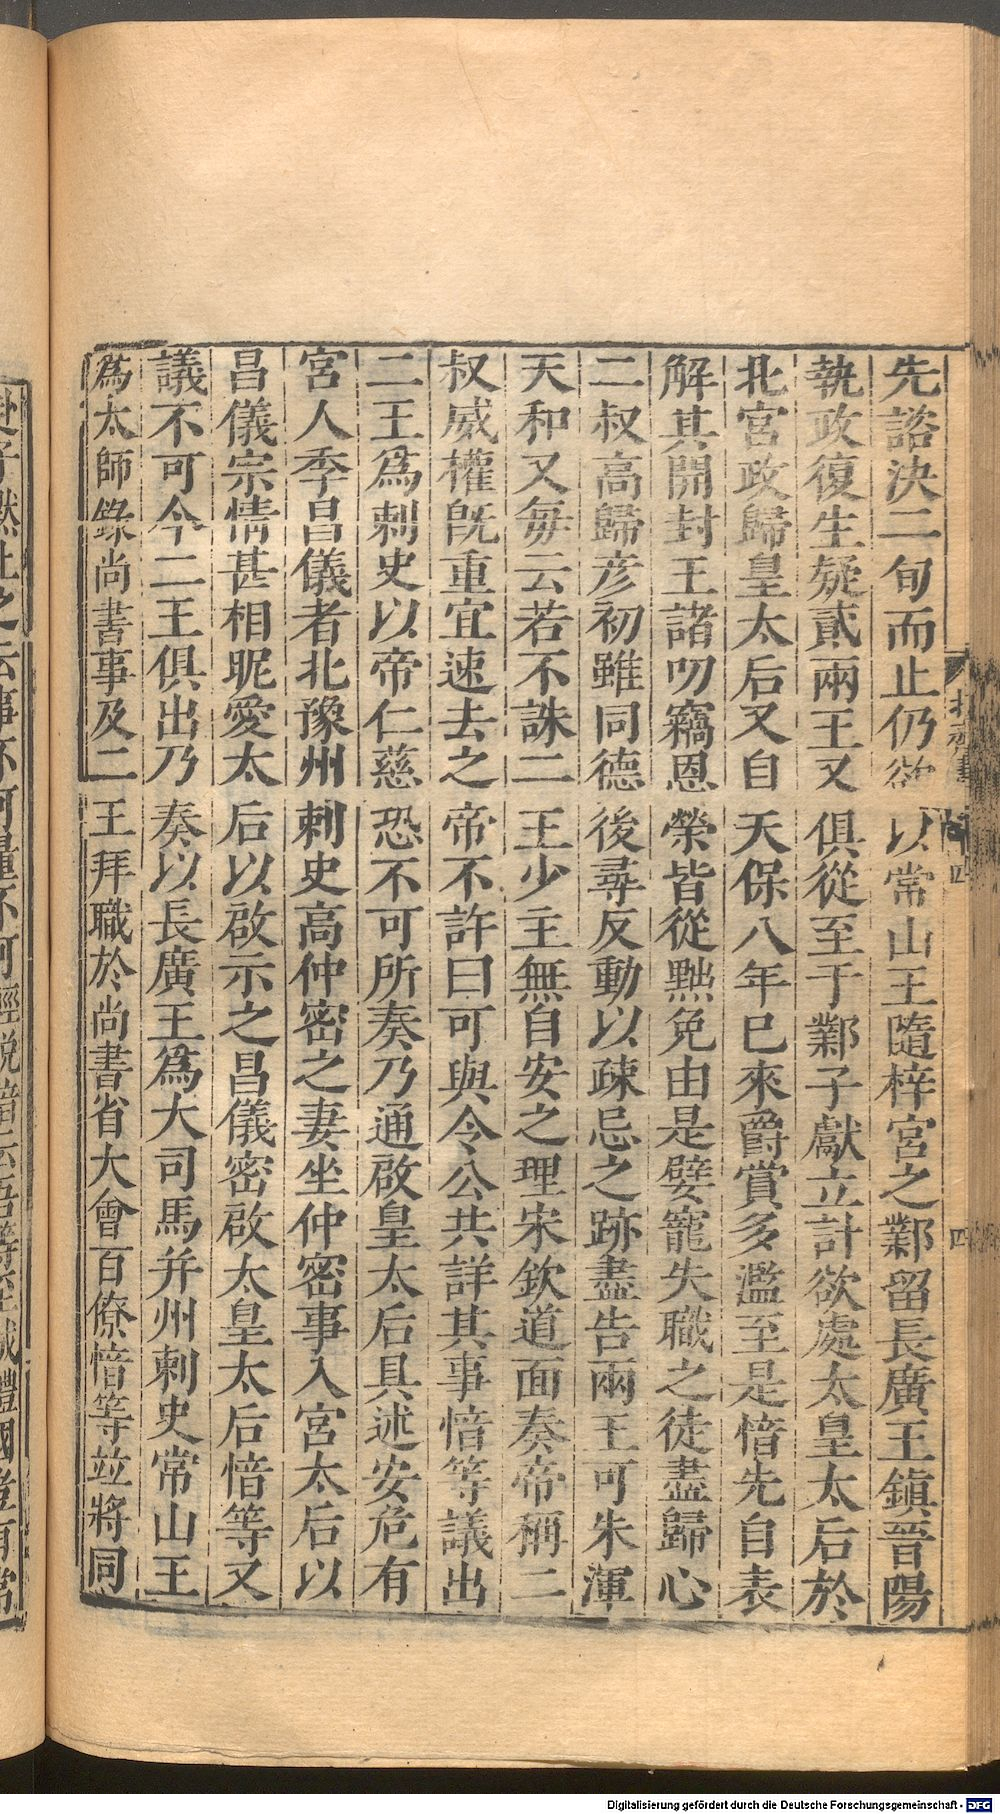 先諮決二旬而止仍欲以常山王隨梓宮之鄴留長廣王鎮晉陽
執政復生疑貳兩王又俱從至于鄴子獻立計欲處太皇太后於
北宮政歸皇太后又自天保八年已來爵賞多濫至是愔先自表
解其開封王諸叨竊恩榮皆從黜免由是嬖寵失職之徒盡歸心
二叔高歸彦初雖同德後尋反動以疎忌之跡盡告兩王可朱渾
天和又毎云若不誅二王少主無自安之理宋欽道面奏帝稱二
叔威權旣重宜速去之帝不許曰可與令公共詳其事愔等議出
二王爲刺史以帝仁慈恐不可所奏乃通啟皇太后具述安危有
宮人季昌儀者北豫州刺史高仲密之妻坐仲密事入宮太后以
昌儀宗情甚相昵愛太后以啟示之昌儀密啟太皇太后愔等又
議不可令二王俱出乃奏以長廣王爲大司馬并州刺史常山王
爲太師錄尚書事及二王拜職於尚書省大會百僚愔等並將同
北齊書
四
四
Digitalisierung gefördert durch die Deutsche Forschungsgemeinschaft - DFG